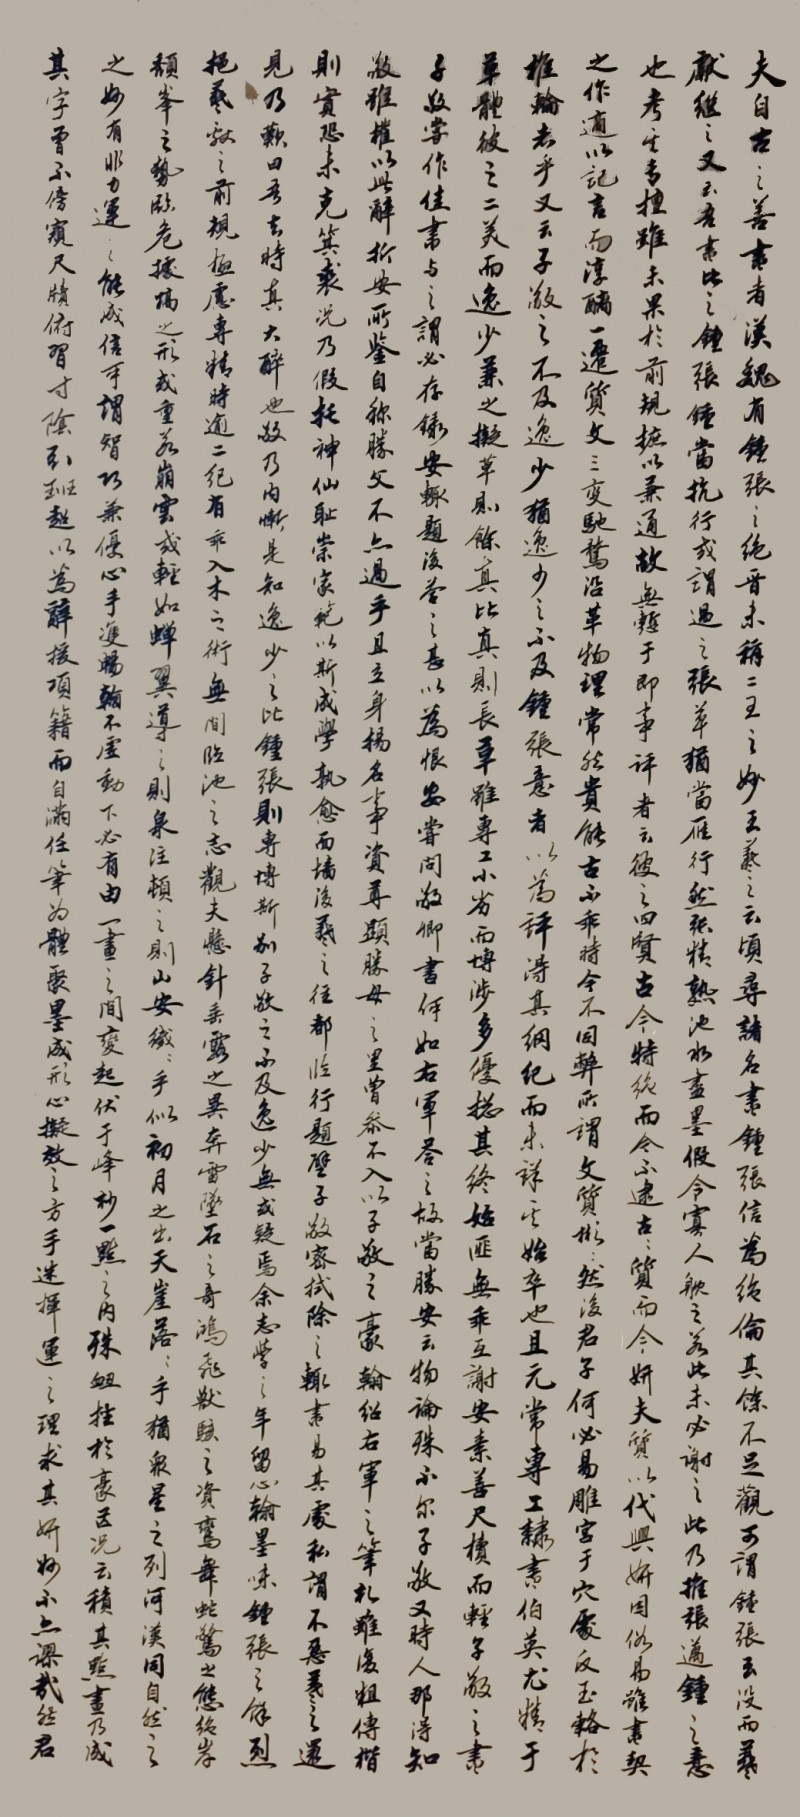 夫自古之善書者漢魏有鍾張之絕晉末稱二王之妙王羲之云頃尋諸名書鍾張信為絕倫其餘不足觀可謂鍾張云沒而羲
獻繼之又云吾書比之鍾張鍾當抗行或謂過之張草猶當雁行然張精熟池水盡墨假令寡人耽之若此未必謝之此乃推張邁鍾之意
也考其專擅雖未果於前規摭以兼通故無慙于即事評者云彼之四賢古今特絕而今不逮古古質而今妍夫質以代興妍因俗易雖書契
之作適以記言而淳醨一遷質文三變馳騖沿革物理常然貴能古不乖時今不同弊所謂文質彬彬然後君子何必易雕宮于穴處反玉輅於
椎輪者乎又云子敬之不及逸少猶逸少之不及鍾張意者以為評得其綱紀而未詳其始卒也且元常專工隸書伯英尤精于
草體彼之二美而逸少兼之擬草則餘真比真則長草雖專工小劣而博涉多優揔其終始匪無乖互謝安素善尺櫝而輕子敬之書
子敬嘗作佳書與之謂必存錄安輒題後答之甚以為恨安嘗問敬卿書何如右軍答之故當勝安云物論殊不尔子敬又時人那得知
敬雖權以此辭折安所鑒自稱勝父不亦過乎且立身揚名事資尊顯勝母之里曾參不入以子敬之豪翰紹右軍之筆札雖復粗傳楷
則實恐未克箕裘況乃假托神仙恥崇家範以斯成學孰愈面墻後羲之往都臨行題壁子敬密拭除之輒書易其處私謂不惡羲之還
見乃歎曰吾去時真大醉也敬乃內慚是知逸少之比鍾張則專博斯別子敬之不及逸少無或疑焉余志學之年留心翰墨味鍾張之餘烈
挹羲獻之前規極慮專精時逾二紀有乖入木之術無間臨池之志觀夫懸針垂露之異奔雷墜石之奇鴻飛獸駭之資鸞舞蛇驚之態絕岸
頹峯之勢臨危據槁之形或重若崩雲或輕如蟬翼導之則泉注頓之則山安纖纖乎似初月之出天崖落落乎猶眾星之列河漢同自然之
之妙有非力運之能成信可謂智巧兼優心手雙暢翰不虛動下必有由一畫之間變起伏于峰杪一點之內殊衄挫於豪芒況云積其點畫乃成
其字曾不傍窺尺牘俯習寸陰引班超以為辭援項籍而自滿任筆為體聚墨成形心擬效之方手迷揮運之理求其妍妙不亦謬哉然君